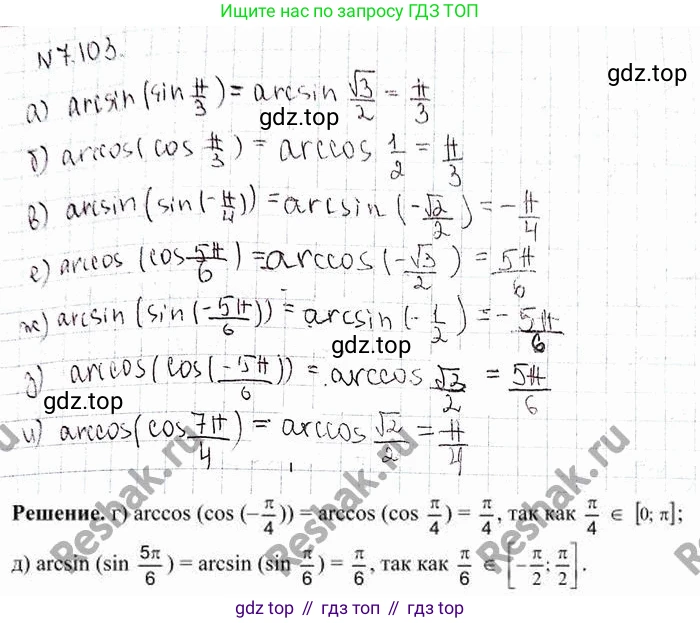 Ищите нас в интернете по запросу ГДЗ ТОП
N7.103.
gdz.top
а) arcsin (sin π/3) = arcsin √3/2 = π/3
gdz.top
б) arccos (cos π/3) = arccos 1/2 = π/3
в) arcsin (sin (-π/4)) = arcsin (-√2/2) = -π/4
gdz.top
е) arccos (cos 5π/6) = arccos (-√3/2) = 5π/6
ж) arcsin (sin (-5π/6)) = arcsin (-1/2) = -5π/6
gdz.top
з) arccos (cos (-5π/6)) = arccos √3/2 = 5π/6
gdz.top
и) arccos (cos 7π/4) = arccos √2/2 = π/4
Reshak.ru
Reshak.ru
Reshak.ru
Решение. г) arccos (cos (-π/4)) = arccos (cos π/4) = π/4, так как π/4 ∈ [0; π];
д) arcsin (sin 5π/6) = arcsin (sin π/6) = π/6, так как π/6 ∈ [-π/2; π/2].
gdz.top // гдз.топ // gdz.top // гдз.топ